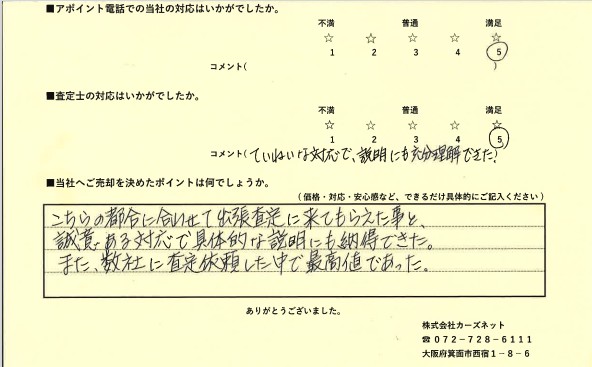 ■アポイント電話での当社の対応はいかがでしたか。
不満 普通 満足
☆ ☆ ☆ ☆ ☆
1 2 3 4 5
コメント( )
■査定士の対応はいかがでしたか。
不満 普通 満足
☆ ☆ ☆ ☆ ☆
1 2 3 4 5
コメント(ていねいな対応で、説明にも充分理解できた!
■当社へご売却を決めたポイントは何でしょうか。
(価格・対応・安心感など、できるだけ具体的にご記入ください)
こちらの都合に合せて出張査定に来てもらえた事と、
誠意ある対応で具体的な説明にも納得できた。
また、数社に査定依頼した中で最高値であった。
ありがとうございました。
株式会社カーズネット
☎072-728-6111
大阪府箕面市西宿1-8-6